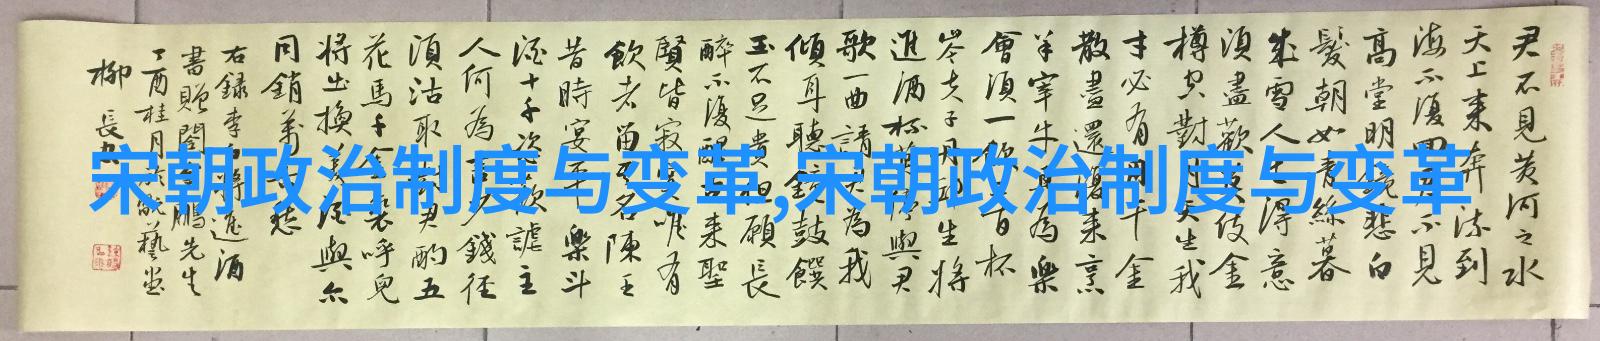 君不見黄河之水
天上來奔流到
海不復回君不見
高堂明鏡悲白
髮朝如青絲暮
成雪人生得意
須盡歡莫使金
樽空對月天生我
才必有用千金
散盡還復來烹
羊宰牛且為樂
會須一飲三百杯
岑夫子丹丘生將
進酒杯莫停與君
歌一曲請君為我
傾耳聽鐘鼓饌
玉不足貴但願長
醉不復醒古來聖
賢皆寂寞唯有
飲者留其名陳王
昔時宴平樂斗
酒十千恣歡謔主
人何為言少錢徑
須沽取對君酌五
花馬千金裘呼兒
將出換美酒與尔
同銷萬古愁
右録李白將進酒
書贈閻鵬先生
丁酉桂月於毓藝堂
柳長忠
宋朝政治制度与变革,宋朝政治制度与变革